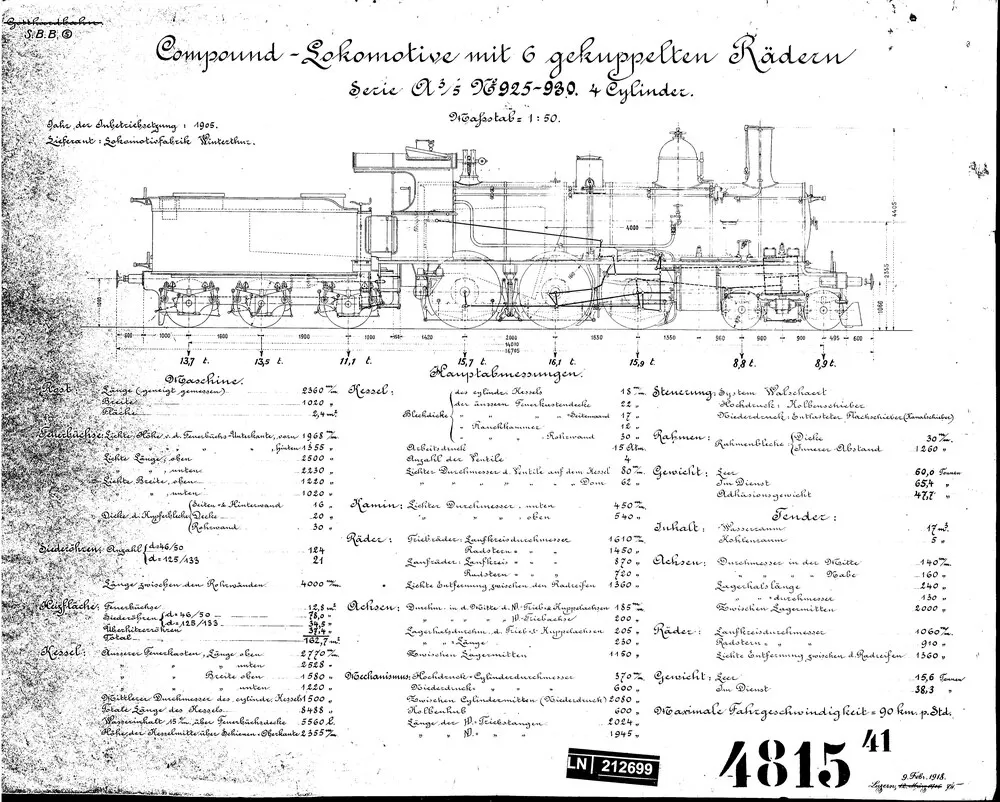 Gotthardbahn
S.B.B.
Compound-Lokomotive mit 6 gekuppelten Rädern
Serie A 3/5 No 925-930. 4 Cylinder.
Maßstab = 1:50.
Jahr der Inbetriebsetzung: 1905.
Lieferant: Lokomotivfabrik Winterthur.
4000
4405
2355
1060
600 1000 1000 1420 2000 960 960 495 600
14010
16705
13,7 t. 13,5 t. 11,1 t. 15,7 t. 16,1 t. 15,9 t. 8,8 t. 8,9 t.
Maschine.
Rost: Länge (geneigt gemessen) 2360 m/m
Breite 1020 "
Fläche 2,4 m²
Feuerbüchse: Lichte Höhe v. d. Feuerbüchs-Unterkante, vorn 1968 m/m
" " " " " , hinten 1355 "
Lichte Länge, oben 2500 "
" " , unten 2230 "
Lichte Breite, oben 1220 "
" " , unten 1020 "
Dicke d. Kupferbleche Seiten & Hinterwand 16 "
Decke 20 "
Rohrwand 30 "
Siederöhren: Anzahl d=46/50 124
d=125/133 21
Länge zwischen den Rohrwänden 4000 m/m
Heizfläche: Feuerbüchse 12,8 m²
Siederöhren d=46/50 78,0 "
d=125/133 34,5 "
Überhitzerröhren 37,4 "
Total 162,7 m²
Kessel: Äusserer Feuerkasten, Länge oben 2770 m/m
" " " unten 2528 "
" " Breite oben 1580 "
" " " unten 1220 "
Mittlerer Durchmesser des cylindr. Kessels 1500 "
Totale Länge des Kessels 8488 "
Wasserinhalt 15 c/m über Feuerbüchsdecke 5560 l.
Höhe der Kesselmitte über Schienen-Oberkante 2355 m/m
Hauptabmessungen.
Kessel: Blechdicke des cylindr. Kessels 18 m/m
der äussern Feuerkastendecke 22 "
" " " Seitenwand 17 "
" Rauchkammer 12 "
" " Rohrwand 30 "
Arbeitsdruck 15 Atm.
Anzahl der Ventile 4
Lichter Durchmesser d. Ventile auf dem Kessel 80 m/m
" " " " " Dom 62 "
Kamin: Lichter Durchmesser, unten 450 m/m
" " , oben 540 "
Räder: Triebräder: Laufkreisdurchmesser 1610 m/m
Radstern " " 1450 "
Laufräder: Laufkreis " " 870 "
Radstern " " 720 "
Lichte Entfernung zwischen den Radreifen 1360 "
Achsen: Durchm. in d. Mitte d. W. Trieb & Kuppelachsen 185 m/m
" " " " W. Triebachse 200 "
Lagerhalsdurchm. d. Trieb & Kuppelachsen 205 "
" Länge " " " 230 "
Zwischen Lagermitten 1150 "
Mechanismus: Hochdruck-Cylinderdurchmesser 370 m/m
Niederdruck- " 600 "
Zwischen Cylindermitten (Niederdruck) 2080 "
Kolbenhub 600 "
Länge der W. Triebstangen 2024 "
" " W. " 1945 "
Steuerung: System Walschaert
Hochdruck: Kolbenschieber
Niederdruck: Entlasteter Flachschieber (Kanalschieber)
Rahmen: Rahmenbleche Dicke 30 m/m
Innerer Abstand 1260 "
Gewicht: Leer 60,0 Tonnen
Im Dienst 65,4 "
Adhäsionsgewicht 47,7 "
Tender:
Inhalt: Wasserraum 17 m³
Kohlenraum 5 "
Achsen: Durchmesser in der Mitte 140 m/m
" " " Nabe 160 "
Lagerhalslänge 240 "
" durchmesser 130 "
Zwischen Lagermitten 2000 "
Räder: Laufkreisdurchmesser 1060 m/m
Radstern " 910 "
Lichte Entfernung zwischen d. Radreifen 1360 "
Gewicht: Leer 15,6 Tonnen
Im Dienst 38,3 "
Maximale Fahrgeschwindigkeit = 90 km. p. Std.
LN 212699
4815 41
9. Febr. 1918.
Luzern,